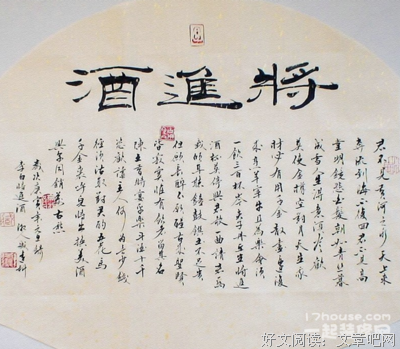 將進酒
君不見黃河之水天上來
奔流到海不復回君不見高
堂明鏡悲白髮朝如青絲暮
成雪人生得意須盡歡
莫使金樽空對月天生我
材必有用千金散盡還復
來烹羊宰牛且為樂會須
一飲三百杯岑夫子丹丘生將進
酒杯莫停與君歌一曲請君為
我側耳聽鐘鼓饌玉不足貴
但願長醉不願醒古來聖賢
皆寂寞惟有飲者留其名
陳王昔時宴平樂斗酒十千
恣歡謔主人何為言少錢
徑須沽取對君酌五花馬
千金裘呼兒將出換美酒
與爾同銷萬古愁
歲次庚寅年之
李白將進酒
17house.com
一起装修网
好文阅读：文章吧网